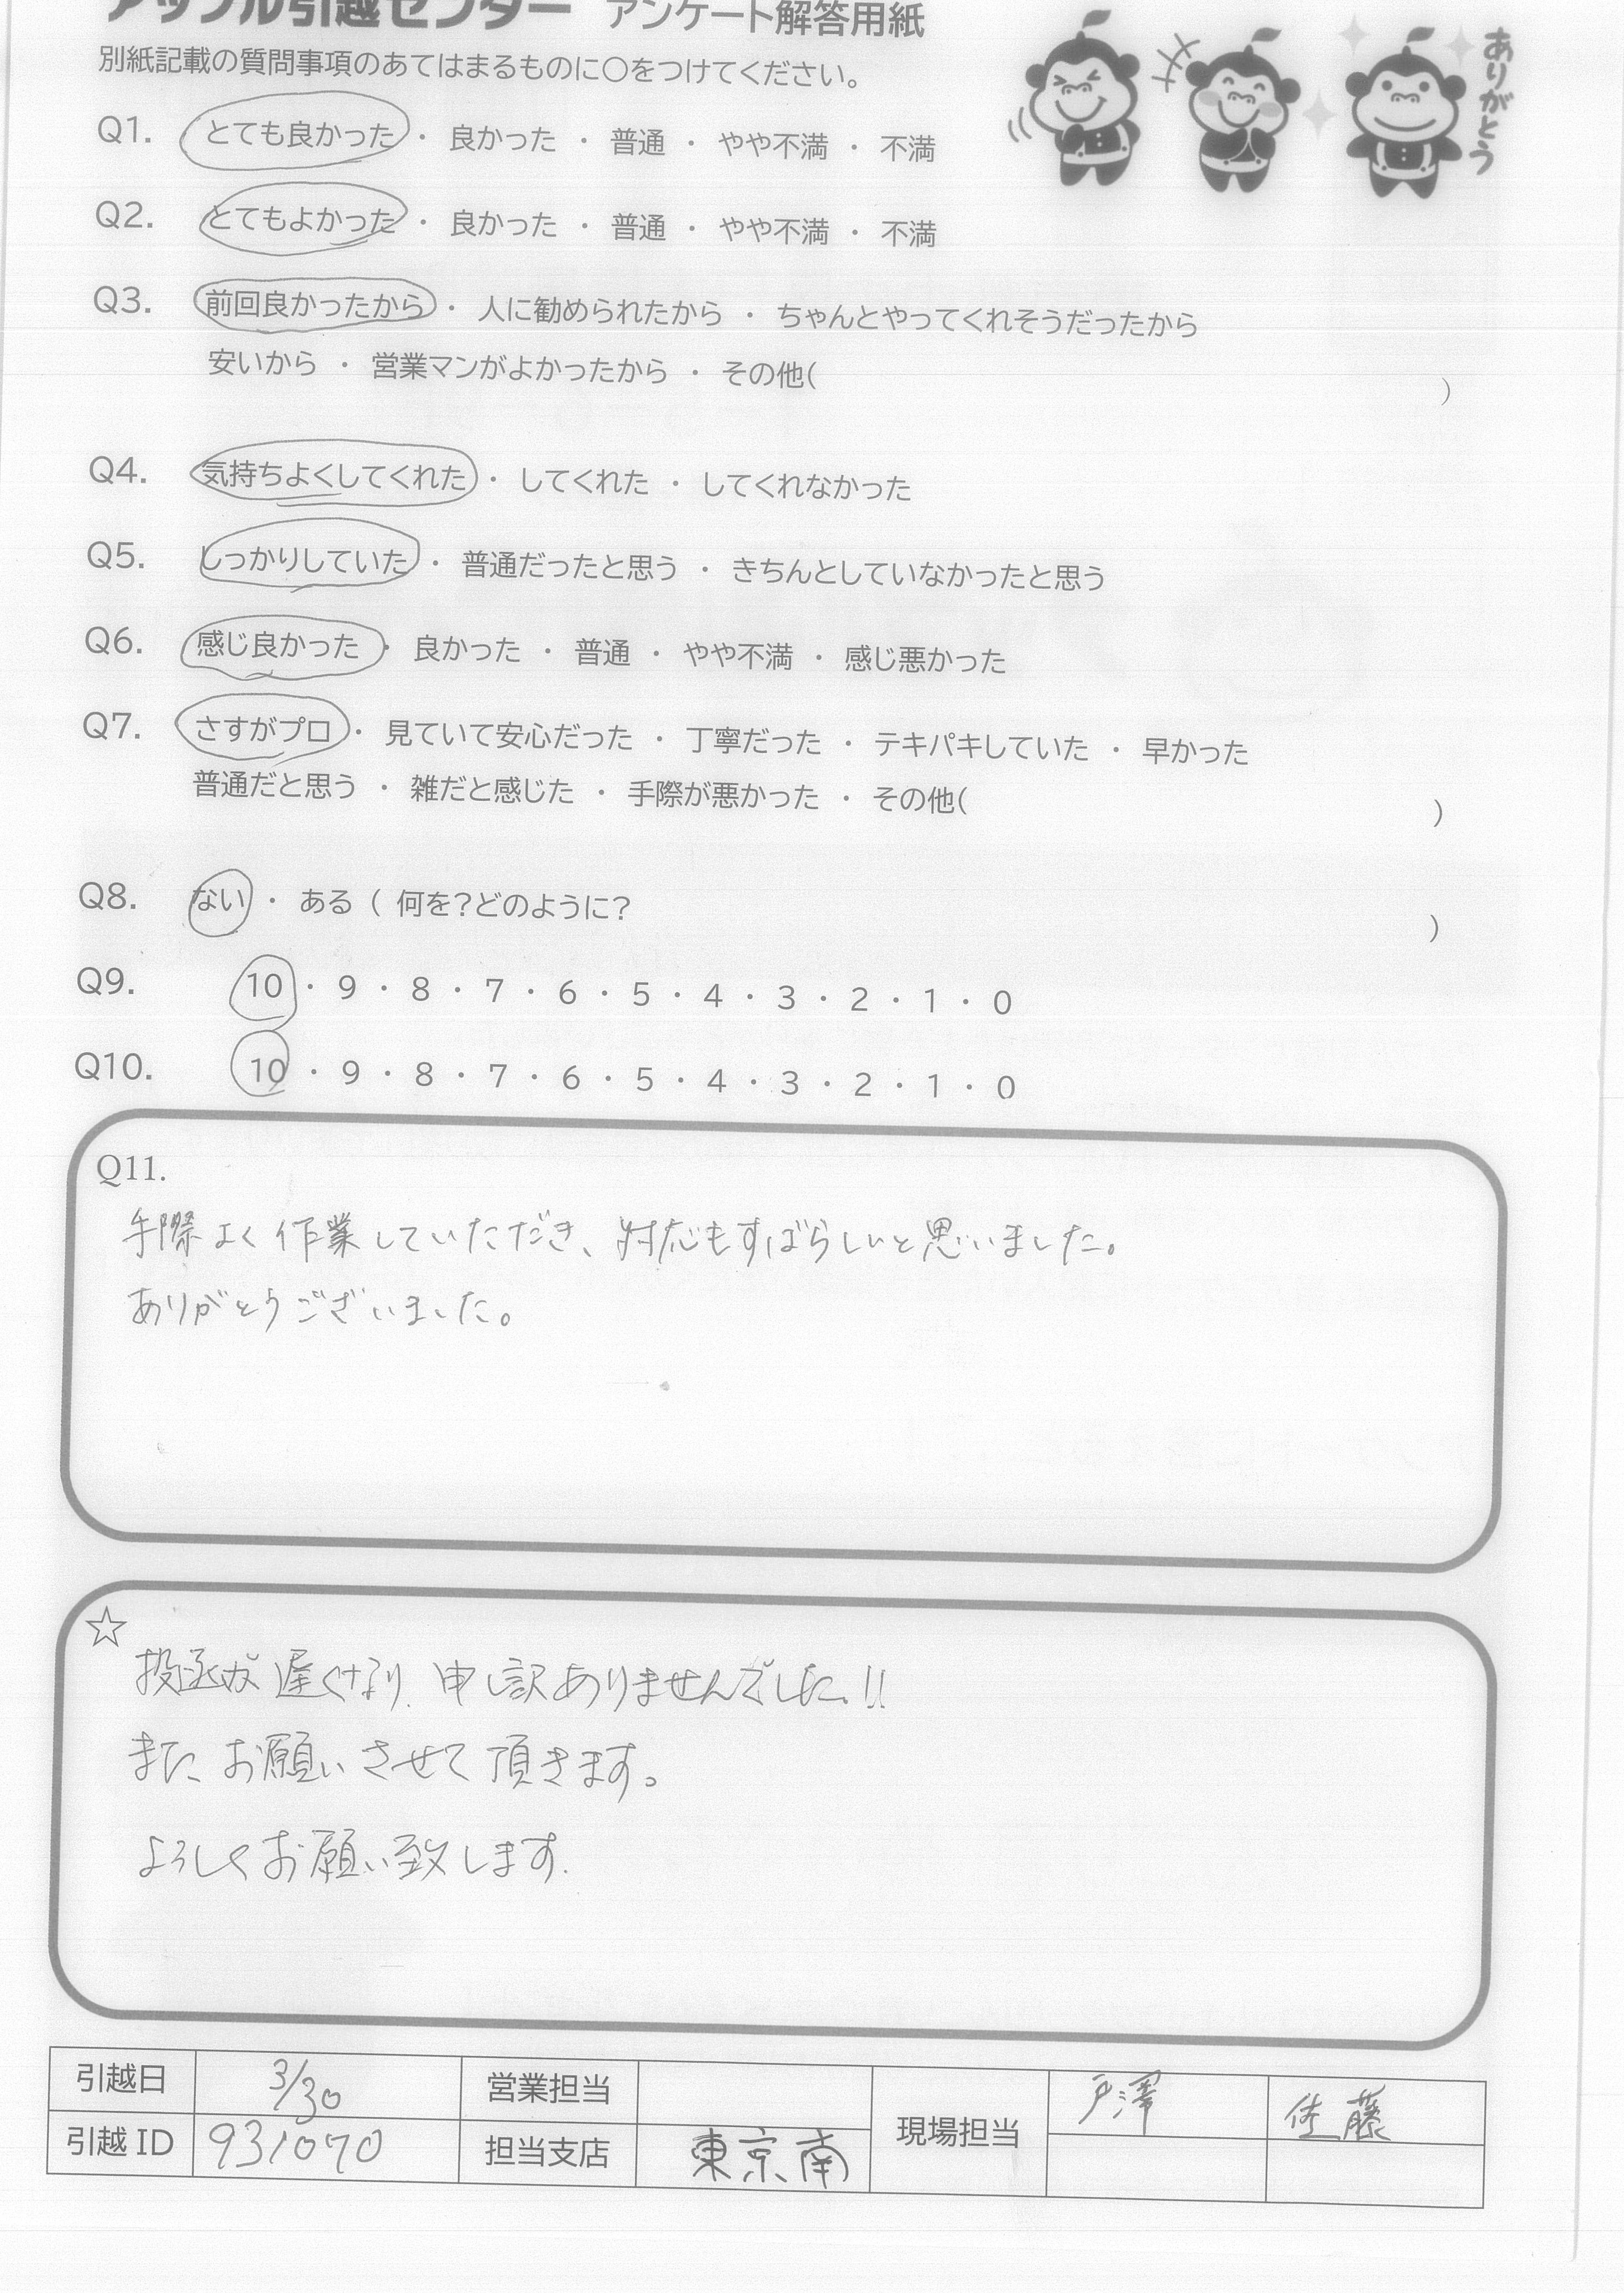 アップル引越センター アンケート解答用紙
別紙記載の質問事項のあてはまるものに○をつけてください。
ありがとう
Q1. とても良かった ・ 良かった ・ 普通 ・ やや不満 ・ 不満
Q2. とてもよかった ・ 良かった ・ 普通 ・ やや不満 ・ 不満
Q3. 前回良かったから ・ 人に勧められたから ・ ちゃんとやってくれそうだったから
安いから ・ 営業マンがよかったから ・ その他( )
Q4. 気持ちよくしてくれた ・ してくれた ・ してくれなかった
Q5. しっかりしていた ・ 普通だったと思う ・ きちんとしていなかったと思う
Q6. 感じ良かった ・ 良かった ・ 普通 ・ やや不満 ・ 感じ悪かった
Q7. さすがプロ ・ 見ていて安心だった ・ 丁寧だった ・ テキパキしていた ・ 早かった
普通だと思う ・ 雑だと感じた ・ 手際が悪かった ・ その他( )
Q8. ない ・ ある ( 何を?どのように? )
Q9. 10 ・ 9 ・ 8 ・ 7 ・ 6 ・ 5 ・ 4 ・ 3 ・ 2 ・ 1 ・ 0
Q10. 10 ・ 9 ・ 8 ・ 7 ・ 6 ・ 5 ・ 4 ・ 3 ・ 2 ・ 1 ・ 0
Q11.
手際よく作業していただき、対応もすばらしいと思いました。
ありがとうございました。
☆
投函が遅くなり、申し訳ありませんでした!!
また、お願いさせて頂きます。
よろしくお願い致します.
引越日 3/30 営業担当 現場担当 戸澤 佐藤
引越ID 931070 担当支店 東京南